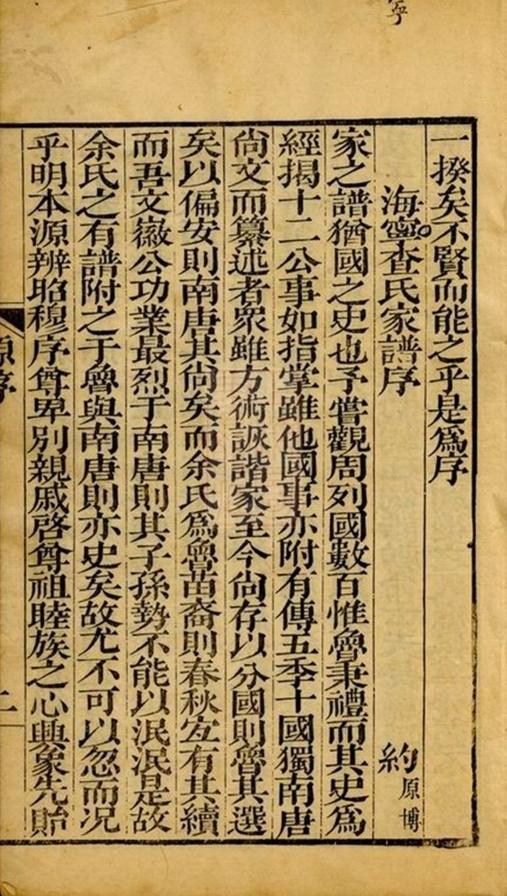 一揆矣不賢而能之乎是為序
海寧查氏家譜序
約 原博
家之譜猶國之史也予嘗觀周列國數百惟魯秉禮而其史為
經揭十二公事如指掌雖他國事亦附有傳五季十國獨南唐
尙文而纂述者衆雖方術詼諧家至今尙存以分國則魯其選
矣以偏安則南唐其尙矣而余氏為魯苗裔則春秋宐有其續
而吾文徽公功業最烈于南唐則其子孫勢不能以泯泯是故
余氏之有譜附之于魯與南唐則亦史矣故尤不可以忽而况
乎明本源辨昭穆序尊卑別親戚啓尊祖睦族之心興象先貽
序
二